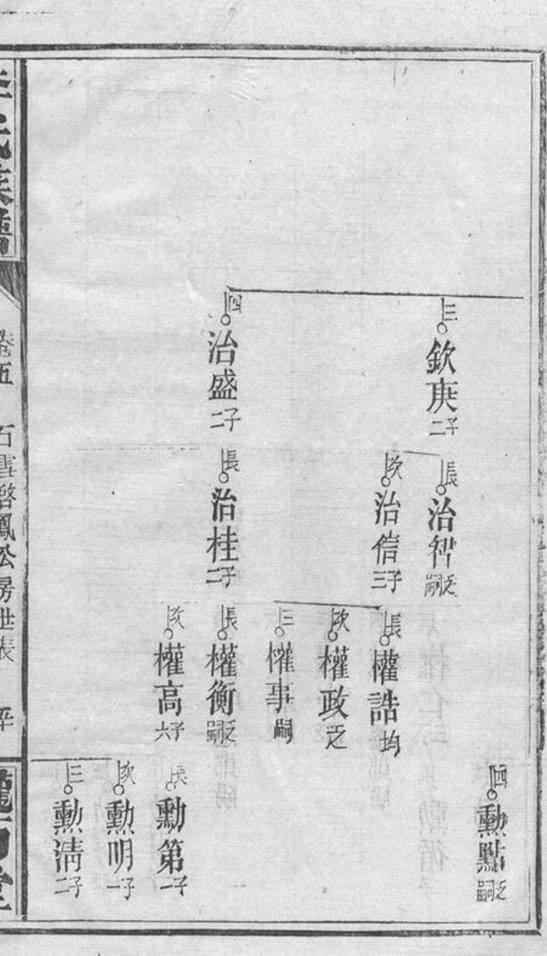 三
欽庚 二子
四
治盛 二子
長
治智 乏嗣
次
治信 三子
長
治桂 二子
長
權誥 均
次
權政 乏
三
權事 嗣
長
權衡 乏嗣
次
權高 六子
四
勳點 乏嗣
長
勳第 一子
次
勳明 一子
三
勳清 二子
氏族譜
卷五
房世表